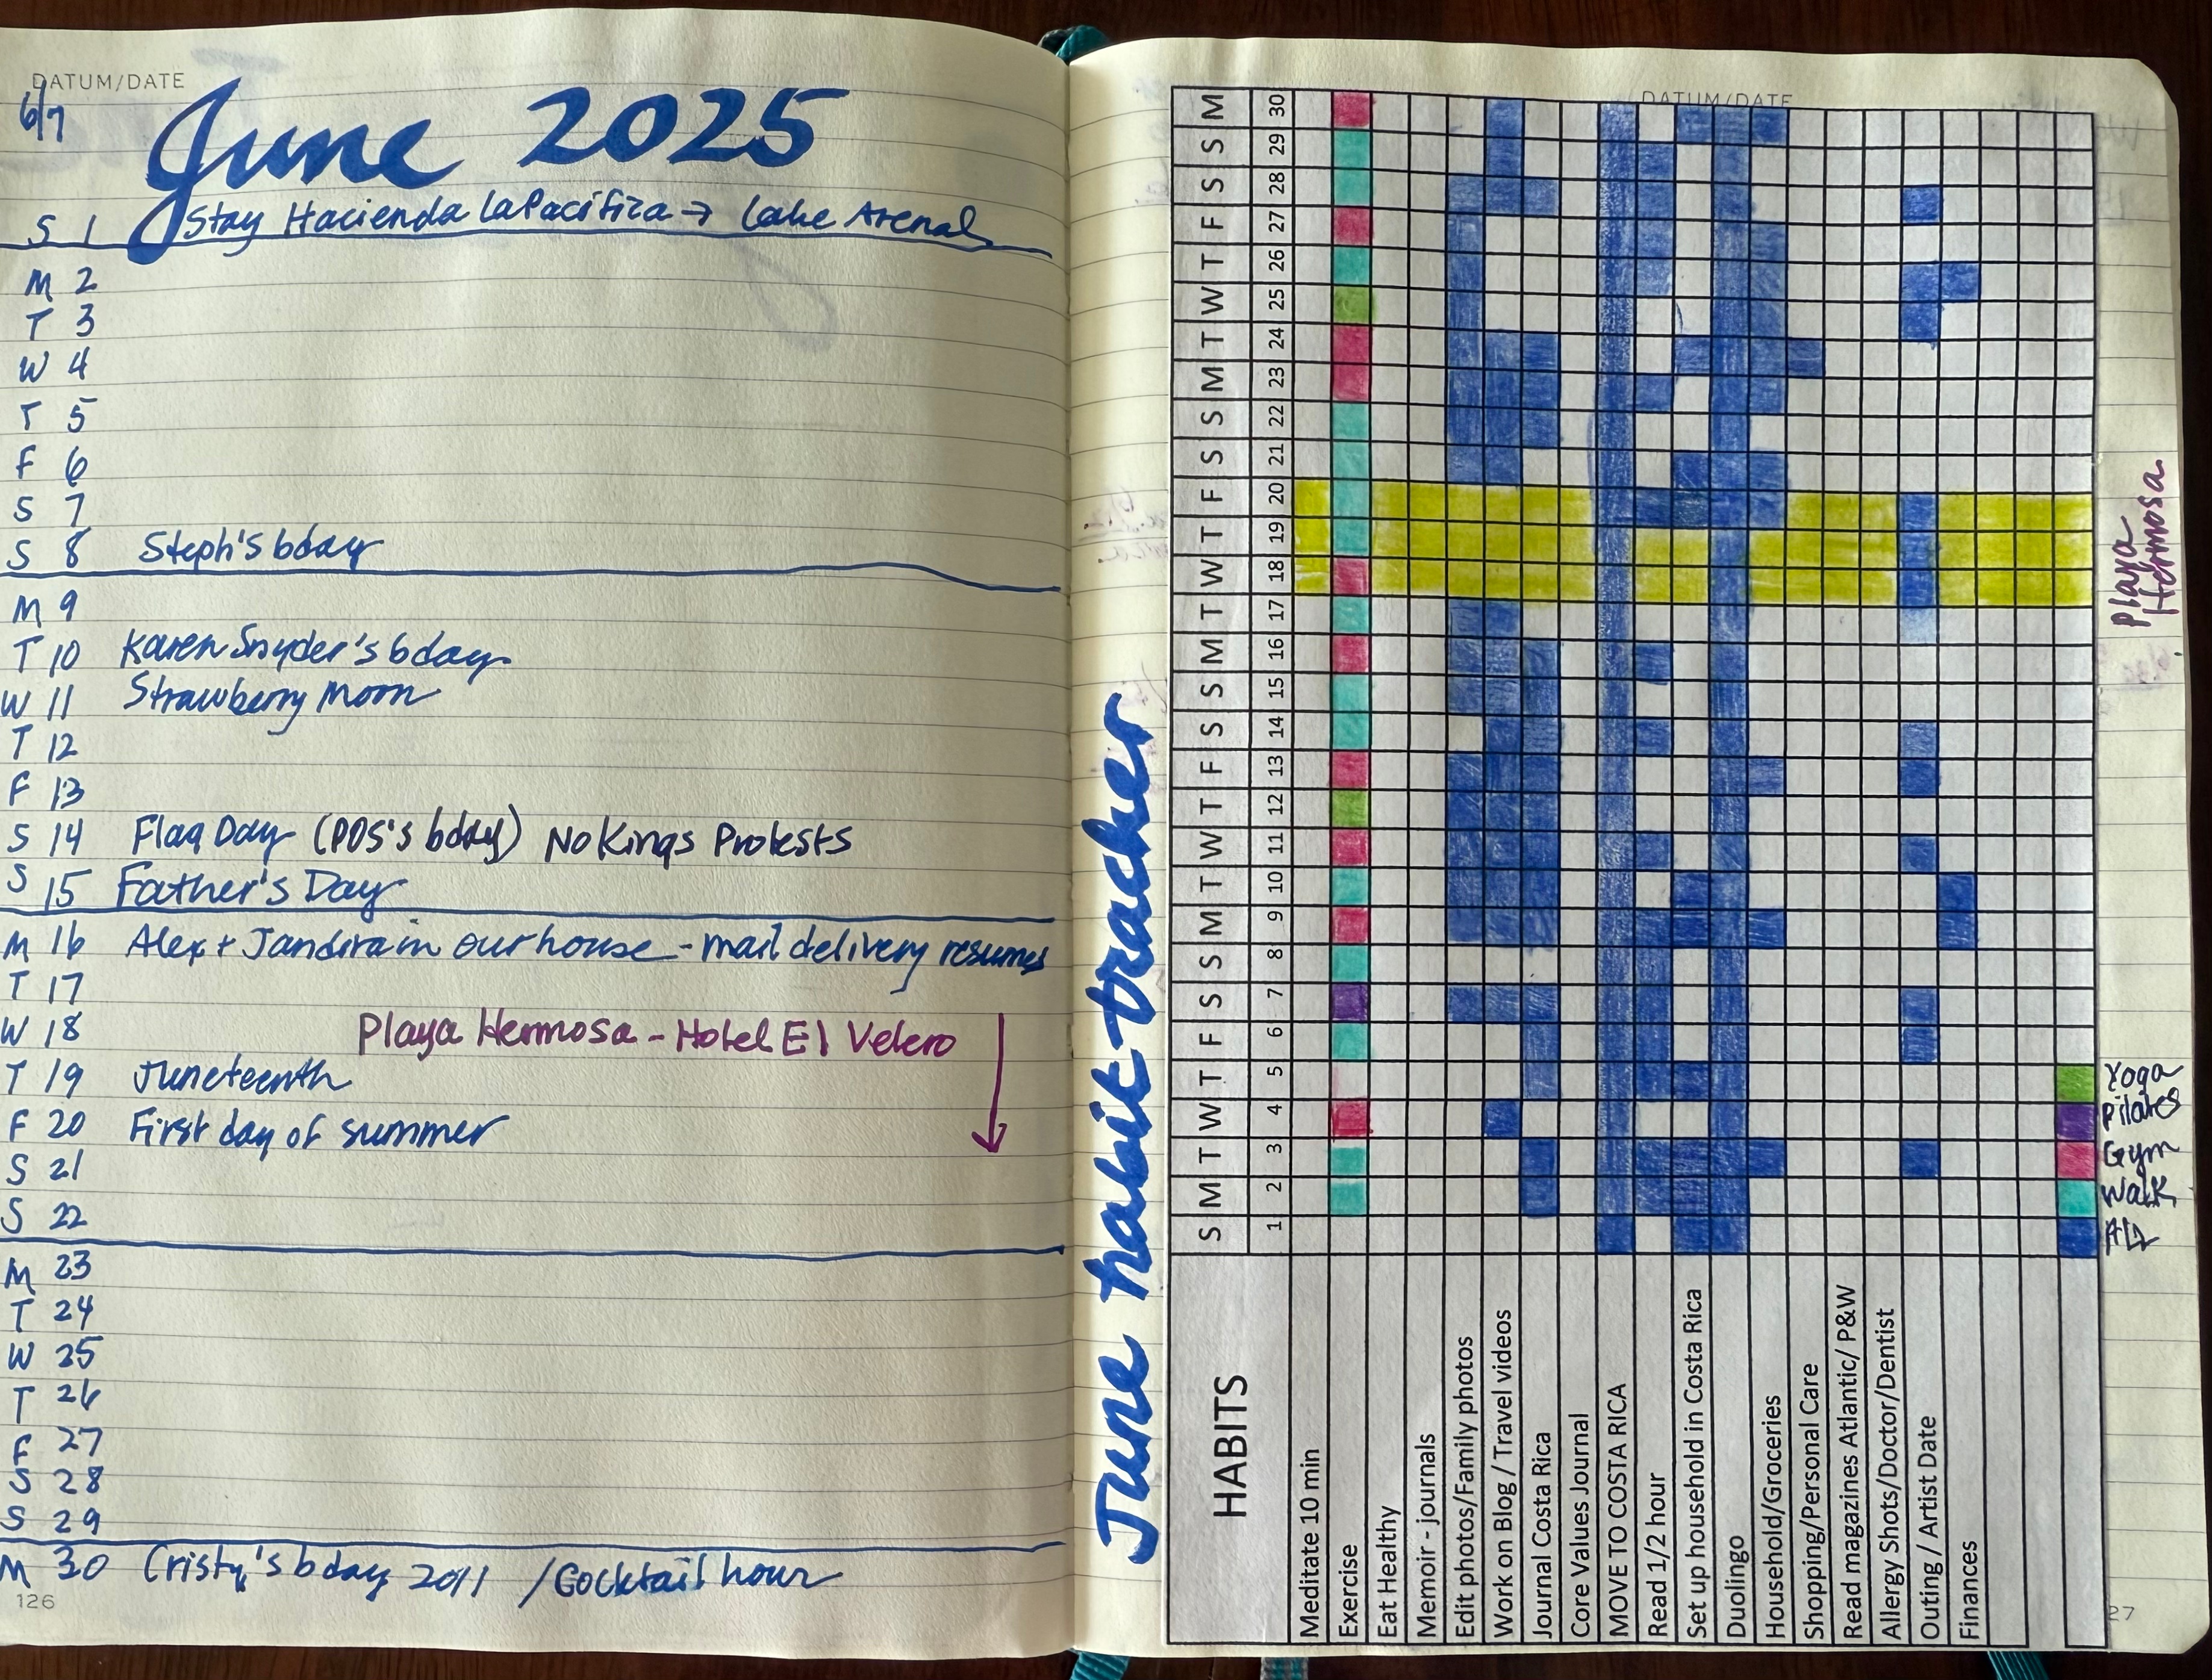 DATUM/DATE
6/7
June 2025
S 1 Stay Hacienda LaPacífica → Lake Arenal
M 2
T 3
W 4
T 5
F 6
S 7
S 8 Steph's bday
M 9
T 10 Karen Snyder's bday
W 11 Strawberry Moon
T 12
F 13
S 14 Flag Day (POS's bday) No Kings Protests
S 15 Father's Day
M 16 Alex + Jandira in our house - mail delivery resumes
T 17
W 18 Playa Hermosa - Hotel El Velero
T 19 Juneteenth
F 20 First day of summer
S 21
S 22
M 23
T 24
W 25
T 26
F 27
S 28
S 29
M 30 Cristy's bday 2011 / Cocktail hour
126
June habit tracker
DATUM/DATE
S M T W T F S S M T W T F S S M T W T F S S M T W T F S S M
HABITS 1 2 3 4 5 6 7 8 9 10 11 12 13 14 15 16 17 18 19 20 21 22 23 24 25 26 27 28 29 30
Meditate 10 min
Exercise
Eat Healthy
Memoir - journals
Edit photos/Family photos
Work on Blog / Travel videos
Journal Costa Rica
Core Values Journal
MOVE TO COSTA RICA
Read 1/2 hour
Set up household in Costa Rica
Duolingo
Household/Groceries
Shopping/Personal Care
Read magazines Atlantic/ P&W
Allergy Shots/Doctor/Dentist
Outing / Artist Date
Finances
Playa
Hermosa
Yoga
Pilates
Gym
Walk
All
27